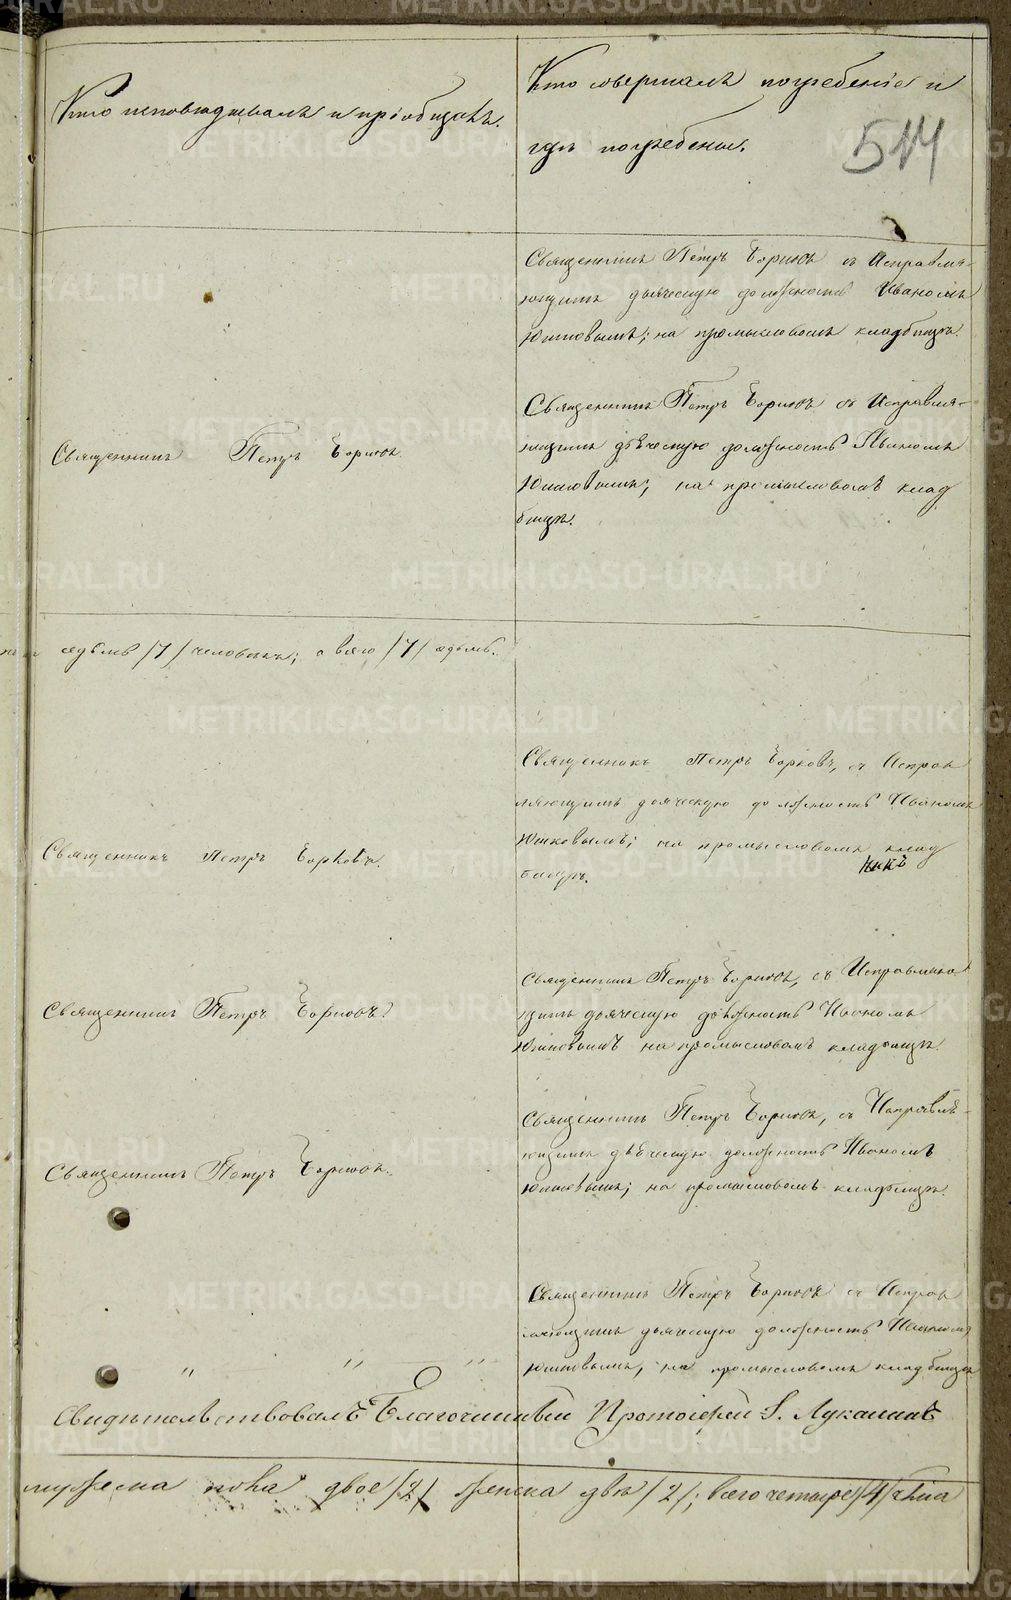 Кто исповѣдывалъ и пріобщалъ.
Кто совершалъ погребеніе и
гдѣ погребены.
514
Священникъ Петръ Борковъ съ Исправля-
ющимъ дьяческую должность Иваномъ
Юшковымъ; на промысловомъ кладбищѣ.
Священникъ Петръ Борковъ
Священникъ Петръ Борковъ съ Исправля-
ющимъ дьяческую должность Иваномъ
Юшковымъ; на промысловомъ клад
бищѣ.
седьмъ /7/ человѣкъ; а всего /7/ седьмъ.
Священникъ Петръ Борковъ.
Священникъ Петръ Борковъ, съ Исправ
ляющимъ дьяческую должность Иваномъ
Юшковымъ; на промысловомъ клад
бищѣ.
Священникъ Петръ Борковъ.
Священникъ Петръ Борковъ, съ Исправляю
щимъ дьяческую должность Иваномъ
Юшковымъ на промысловомъ кладбищѣ.
Священникъ Петръ Борковъ.
Священникъ Петръ Борковъ, съ Исправля-
ющимъ дьяческую должность Иваномъ
Юшковымъ; на промысловомъ кладбищѣ.
" " "
Священникъ Петръ Борковъ съ Исправ
ляющимъ дьяческую должность Иваномъ
Юшковымъ, на промысловомъ кладбищѣ
Свидѣтельствовалъ Благочинный Протоіерей І. Лукаинъ
мужеска пола двое /2/ женска двѣ /2/; всего четыре /4/
METRIKI.GASO-URAL.RU